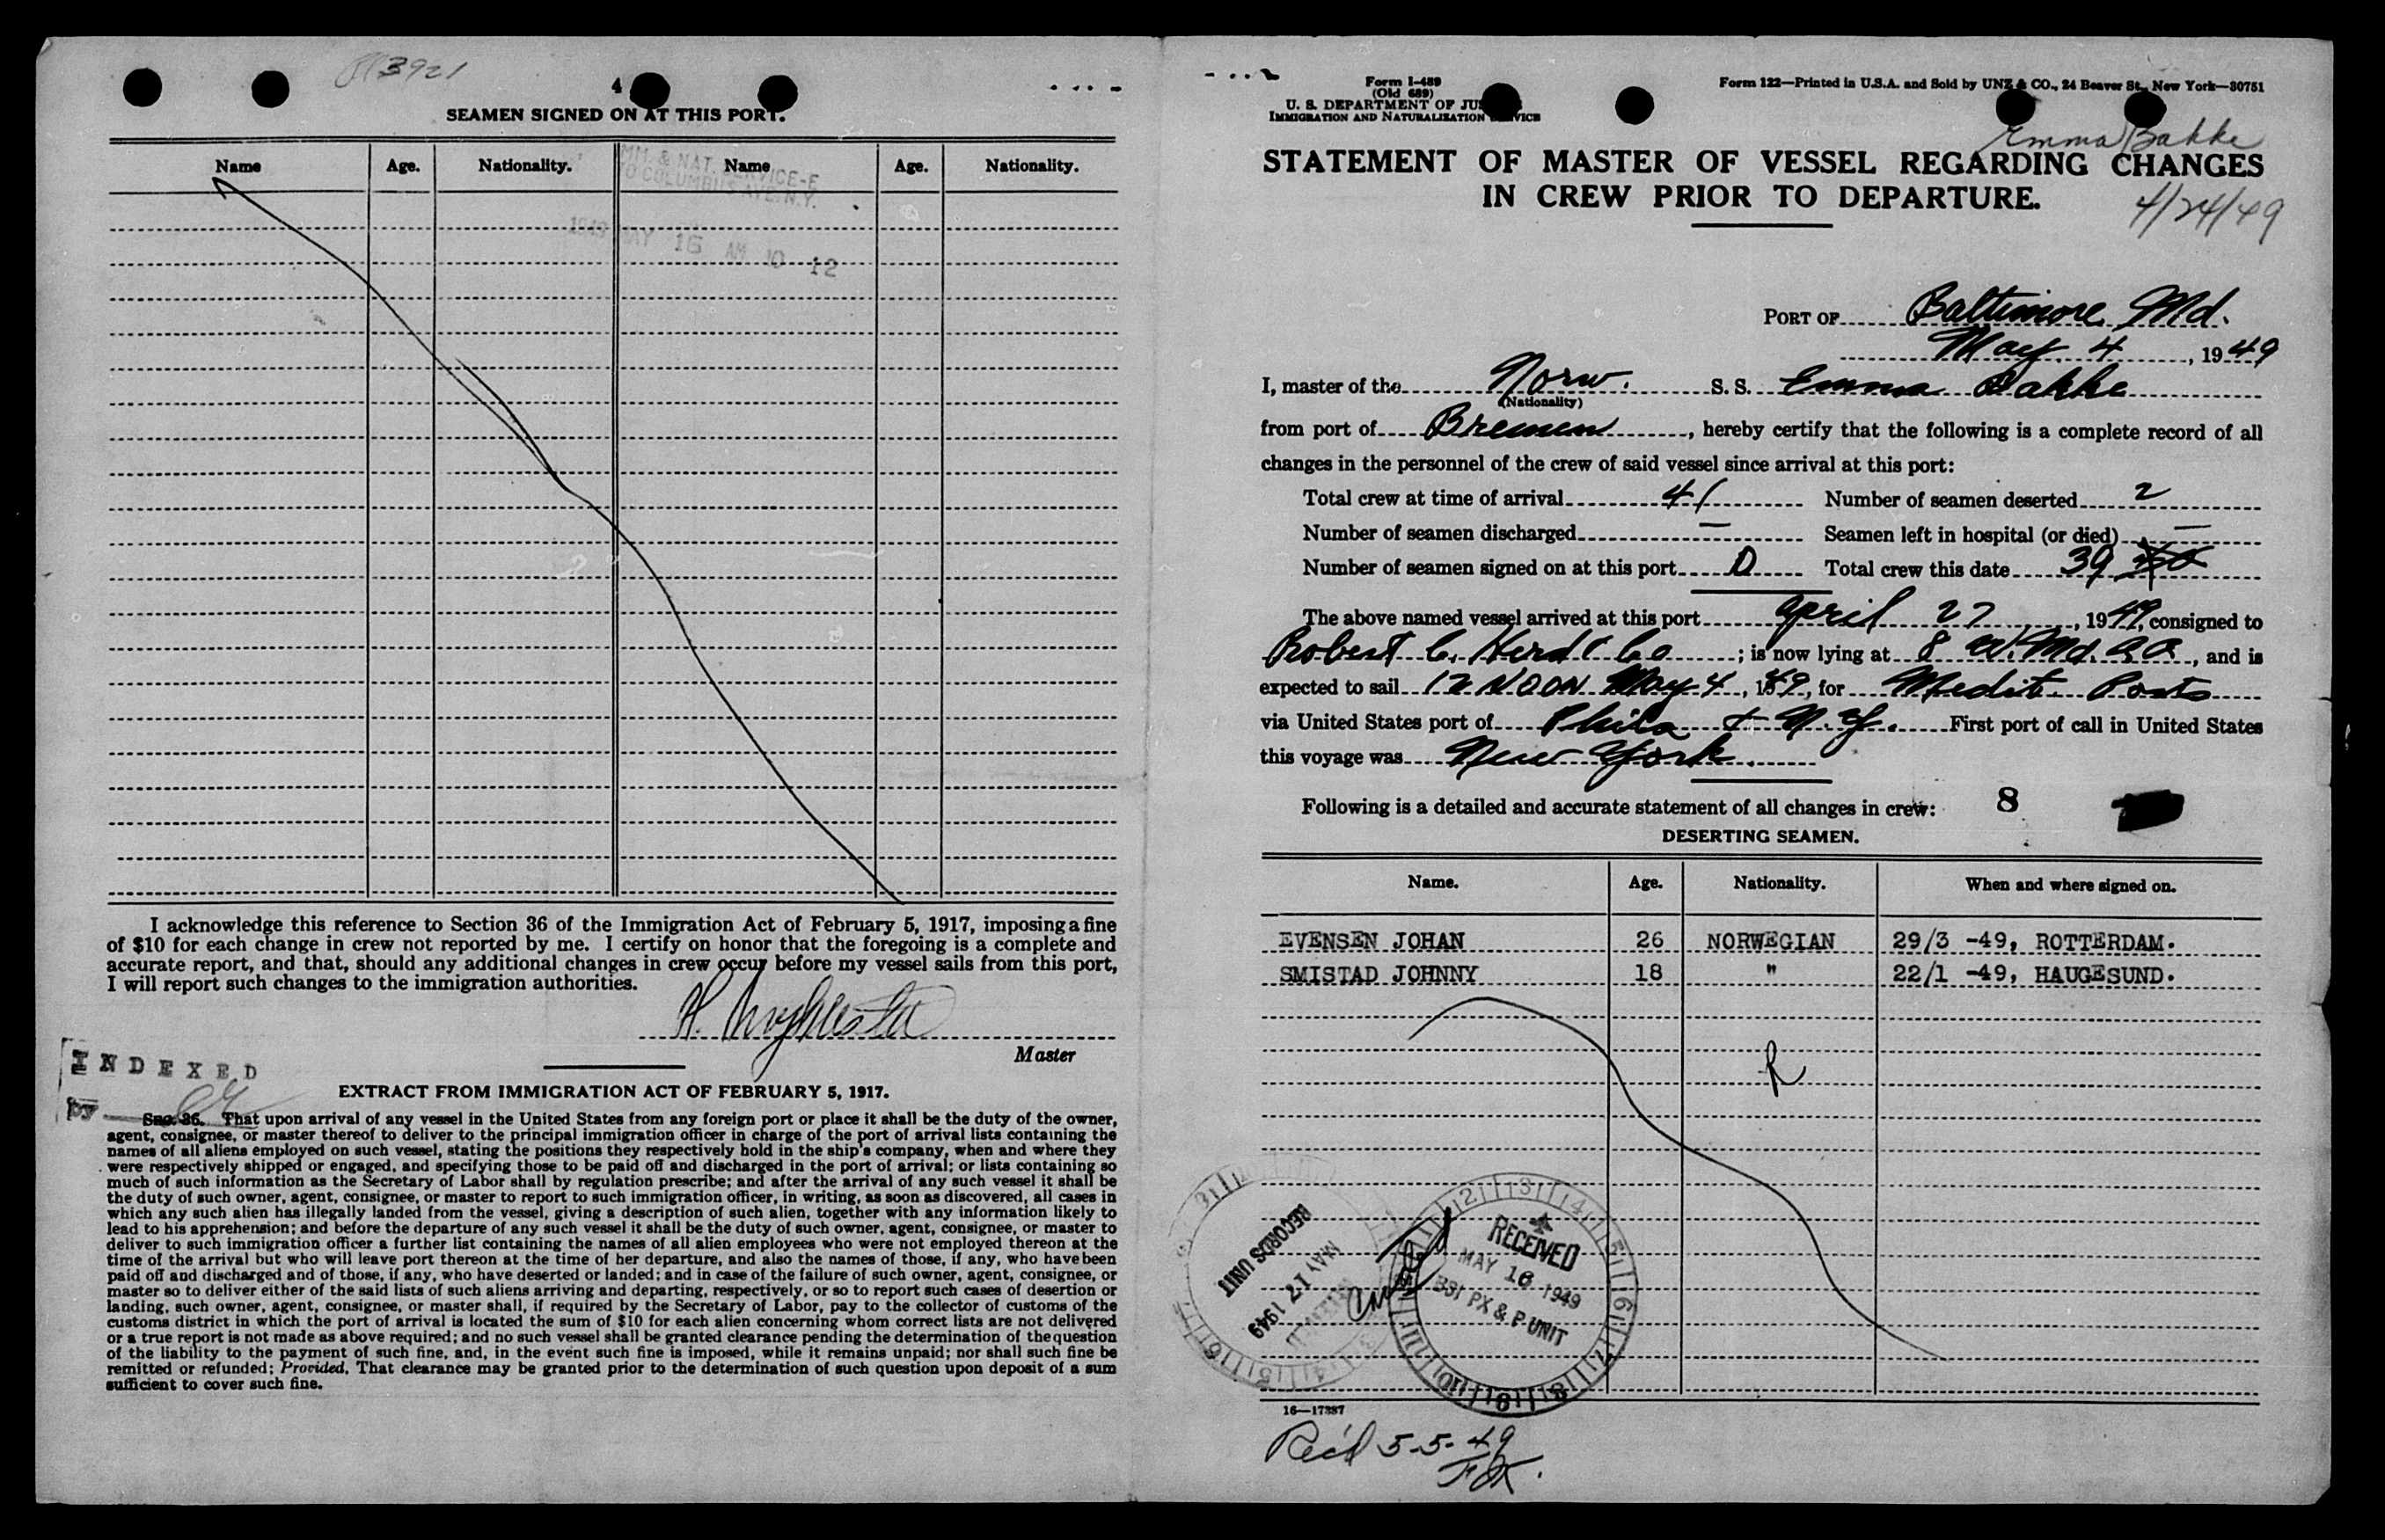 3921
4
SEAMEN SIGNED ON AT THIS PORT.
Name Age. Nationality. Name Age. Nationality.
IMM. & NAT. SERVICE-E
70 COLUMBUS AVE. N.Y.
1949 MAY 16 AM 10 12
I acknowledge this reference to Section 36 of the Immigration Act of February 5, 1917, imposing a fine
of $10 for each change in crew not reported by me. I certify on honor that the foregoing is a complete and
accurate report, and that, should any additional changes in crew occur before my vessel sails from this port,
I will report such changes to the immigration authorities.
H.
Master
INDEXED
by
EXTRACT FROM IMMIGRATION ACT OF FEBRUARY 5, 1917.
Sec. 36. That upon arrival of any vessel in the United States from any foreign port or place it shall be the duty of the owner,
agent, consignee, or master thereof to deliver to the principal immigration officer in charge of the port of arrival lists containing the
names of all aliens employed on such vessel, stating the positions they respectively hold in the ship's company, when and where they
were respectively shipped or engaged, and specifying those to be paid off and discharged in the port of arrival; or lists containing so
much of such information as the Secretary of Labor shall by regulation prescribe; and after the arrival of any such vessel it shall be
the duty of such owner, agent, consignee, or master to report to such immigration officer, in writing, as soon as discovered, all cases in
which any such alien has illegally landed from the vessel, giving a description of such alien, together with any information likely to
lead to his apprehension; and before the departure of any such vessel it shall be the duty of such owner, agent, consignee, or master to
deliver to such immigration officer a further list containing the names of all alien employees who were not employed thereon at the
time of the arrival but who will leave port thereon at the time of her departure, and also the names of those, if any, who have been
paid off and discharged and of those, if any, who have deserted or landed; and in case of the failure of such owner, agent, consignee, or
master so to deliver either of the said lists of such aliens arriving and departing, respectively, or so to report such cases of desertion or
landing, such owner, agent, consignee, or master shall, if required by the Secretary of Labor, pay to the collector of customs of the
customs district in which the port of arrival is located the sum of $10 for each alien concerning whom correct lists are not delivered
or a true report is not made as above required; and no such vessel shall be granted clearance pending the determination of the question
of the liability to the payment of such fine, and, in the event such fine is imposed, while it remains unpaid; nor shall such fine be
remitted or refunded; Provided, That clearance may be granted prior to the determination of such question upon deposit of a sum
sufficient to cover such fine.
Form I-489
(Old 689)
U. S. DEPARTMENT OF JUS
IMMIGRATION AND NATURALIZATION VICE
Form 122—Printed in U.S.A. and Sold by UNZ & CO., 24 Beaver St., New York—30751
Emma Bakke
STATEMENT OF MASTER OF VESSEL REGARDING CHANGES
IN CREW PRIOR TO DEPARTURE.
4/24/49
PORT OF Baltimore, Md.
May 4, 1949
I, master of the Norw. S. S. Emma Bakke
(Nationality)
from port of Bremen, hereby certify that the following is a complete record of all
changes in the personnel of the crew of said vessel since arrival at this port:
Total crew at time of arrival 41 Number of seamen deserted 2
Number of seamen discharged — Seamen left in hospital (or died) —
Number of seamen signed on at this port 0 Total crew this date 39
The above named vessel arrived at this port April 27, 1949, consigned to
Robert C. Herd & Co; is now lying at 8 W. Md. RR, and is
expected to sail 12 NOON May 4, 1949, for Medit. Ports
via United States port of Phila + N.Y. First port of call in United States
this voyage was New York.
Following is a detailed and accurate statement of all changes in crew: 8
DESERTING SEAMEN.
Name. Age. Nationality. When and where signed on.
EVENSEN JOHAN 26 NORWEGIAN 29/3 -49, ROTTERDAM.
SMISTAD JOHNNY 18 " 22/1 -49, HAUGESUND.
R
RECORDS UNIT
MAY 17 1949
RECEIVED
MAY 16 1949
331 PX & P UNIT
16—17387
Rec'd 5-5-49